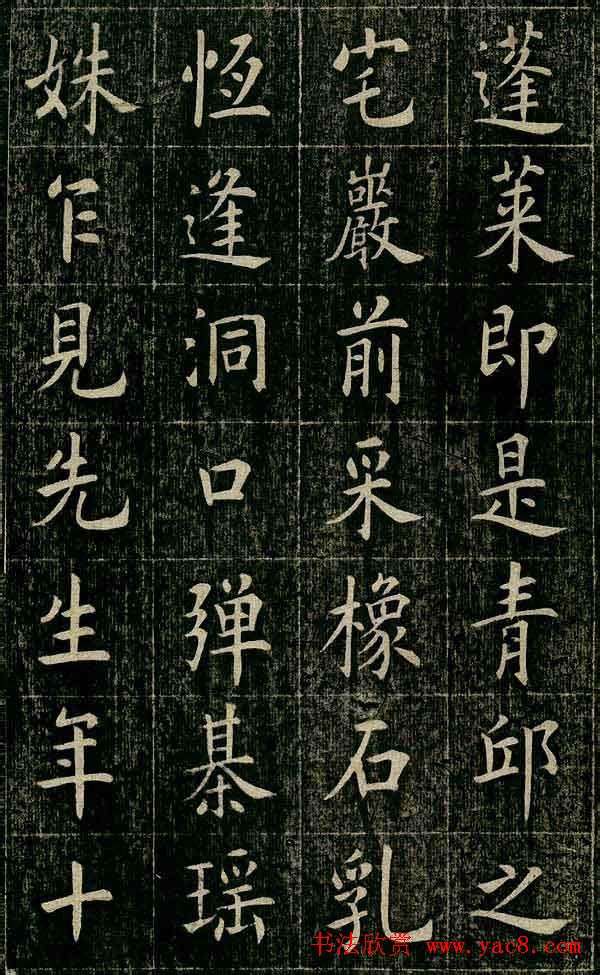 蓬萊即是青邱之
宅巖前采橡石乳
恆逢洞口弹棊瑶
姝乍見先生年十
书法欣赏 www.yac8.com